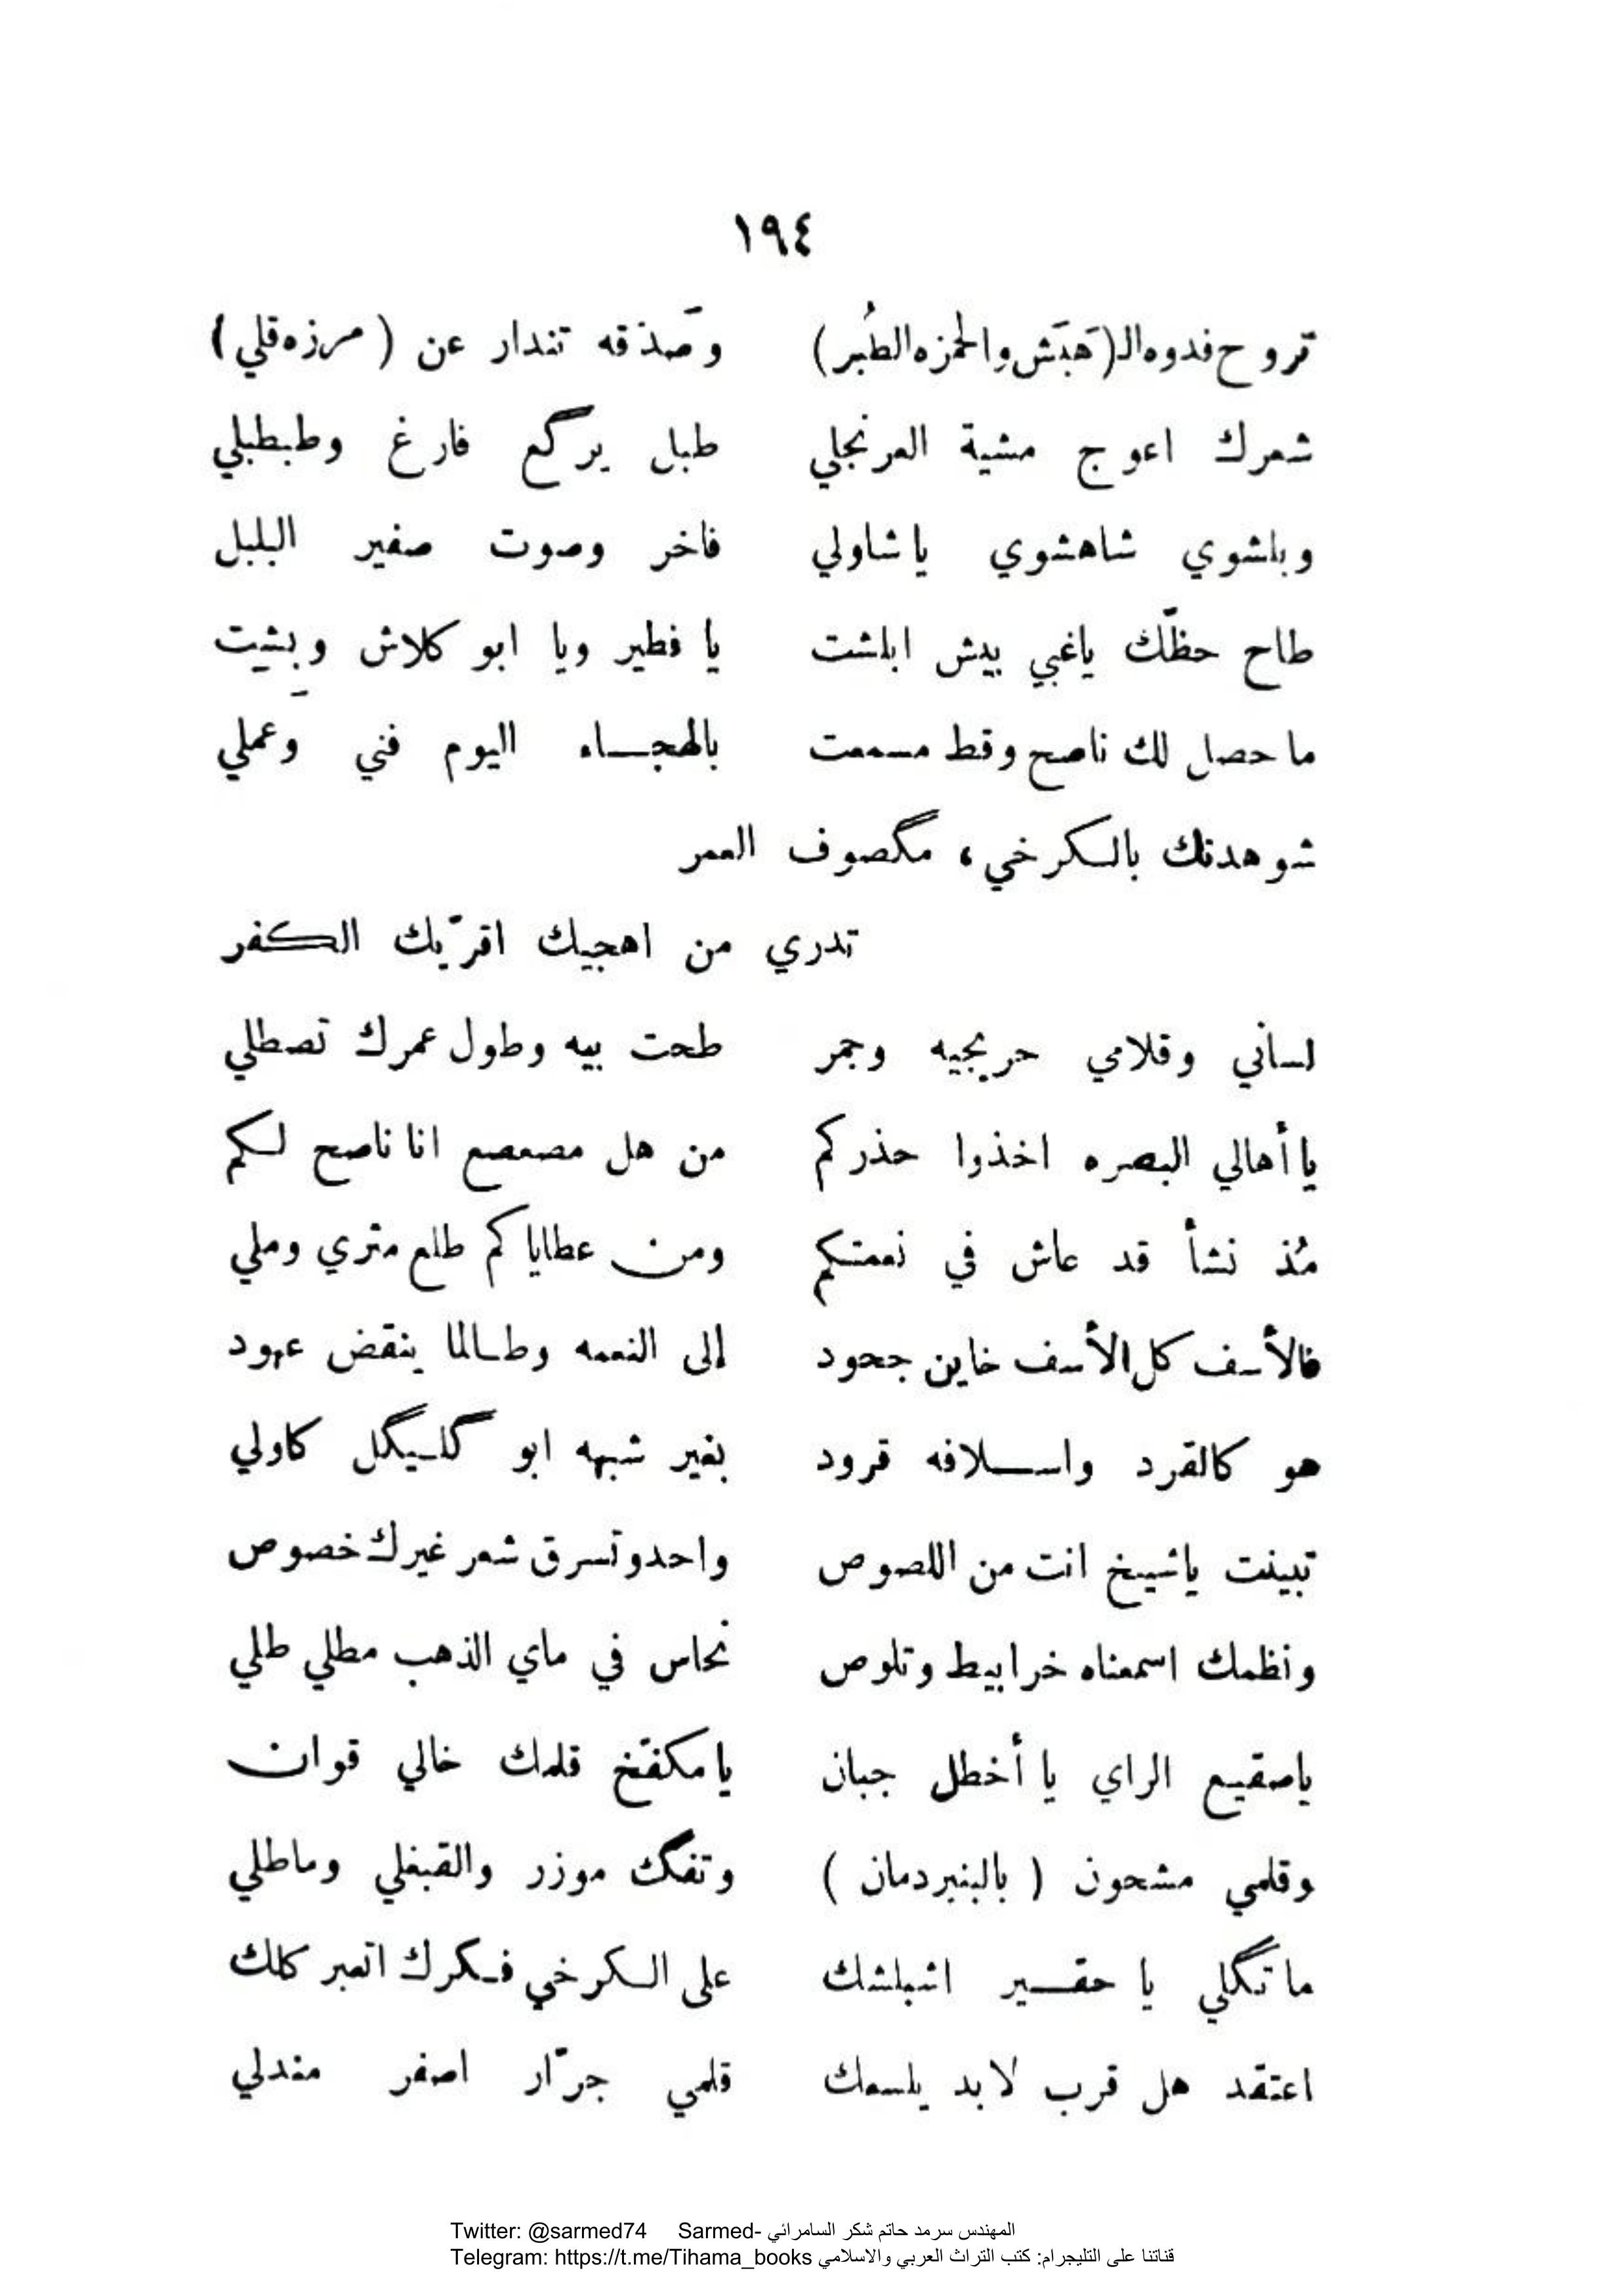 ١٩٤
تروح فدوه الـ(هَبَش والحمزه الطُبر) وصَذقه تندار عن (مرزه قلي)
شعرك اعوج مشية العرنجلي طبل يرگع فارغ وطبطبلي
وبلشوي شاهشوي ياشاولي فاخر وصوت صفير البلبل
طاح حظّك ياغبي بيش ابلشت يا فطير ويا ابو كلاش وبشيت
ما حصل لك ناصح وقط مسمعت بالهجـاء اليوم فني وَعملي
شوهدتك بالكرخي، مگصوف العمر
تدري من اهجيك اقرّيك الكفر
لساني وقلامي حربجيه وجمر طحت بيه وطول عمرك تصطلي
يا أهالي البصره اخذوا حذركم من هل مصعصع انا ناصح لكم
مُذ نشأ قد عاش في نعمتكم ومن عطاياكم طلع مثري وملي
فالأسف كل الأسف خاين جحود إلى النعمه وطالما ينقض عهود
هو كالقرد واسـلافه قرود بغير شبهه ابو گليگل كاولي
تبينت ياشيخ انت من اللصوص واحد وتسرق شعر غيرك خصوص
ونظمك اسمعناه خرابيط وتلوص نحاس في ماي الذهب مطلي طلي
ياصقيع الراي يا أخطل جبان يامكفّخ قلمك خالي قوان
وقلمي مشحون (بالبنبردمان) وتفگك موزر والقبغلي وماطلي
ما تگلي يا حقـير اشبلشك على الكرخي فكرك اتعبر كلك
اعتقد هل قرب لابد يلسعك قلمي جرّار اصفر مندلي
Twitter: @sarmed74 Sarmed- المهندس سرمد حاتم شكر السامرائي
Telegram: https://t.me/Tihama_books قناتنا على التليجرام: كتب التراث العربي والاسلامي